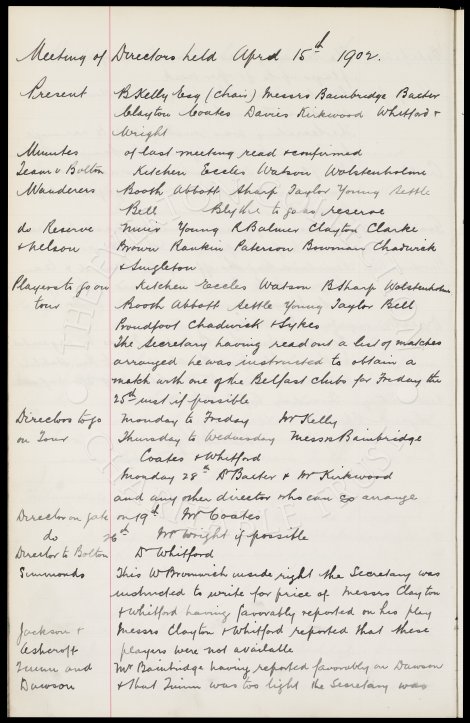 Meeting of Directors held April 15th 1902.
Present B Kelly Esq (Chair) Messrs Bainbridge Baxter
Clayton Coates Davies Kirkwood Whitford &
Wright
Minutes of last meeting read & confirmed
Team v Bolton Kitchen Eccles Watson Wolstenholme
Wanderers Booth Abbott Sharp Taylor Young Settle
Bell Blythe to go as reserve
do Reserve Muir Young R Balmer Clayton Clarke
v Nelson Brown Rankin Paterson Bowman Chadwick
& Singleton
Players to go on Kitchen Eccles Watson B Sharp Wolstenholm
tour Booth Abbott Settle Young Taylor Bell
Proudfoot Chadwick & Sykes
The Secretary having read out a list of matches
arranged he was instructed to obtain a
match with one of the Belfast clubs for Friday the
25th inst if possible
Directors to go Monday to Friday Mr Kelly
on Tour Thursday to Wednesday Messrs Bainbridge
Coates & Whitford
Monday 28th Dr Baxter & Mr Kirkwood
and any other director who can so arrange
Director on gate on 19th Mr Coates
do 26th Mr Wright if possible
Director to Bolton Dr Whitford
Simmonds This W Bromwich inside right the Secretary was
instructed to write for price of Messrs Clayton
& Whitford having favorably reported on his play
Jackson & Messrs Clayton & Whitford reported that these
Ashcroft players were not available
and Mr Bainbridge having reported favorably on Dawson
Dawson & that was too light the Secretary was